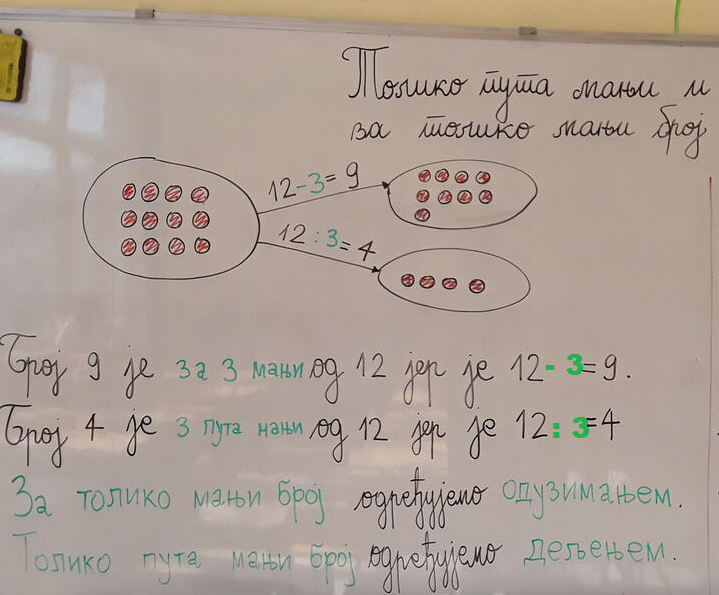 Толико пута мањи и
за толико мањи број
12-3=9
12:3=4
Број 9 је за 3 мањи од 12 јер је 12-3=9.
Број 4 је 3 пута мањи од 12 јер је 12:3=4
За толико мањи број одређујемо одузимањем.
Толико пута мањи број одређујемо дељењем.